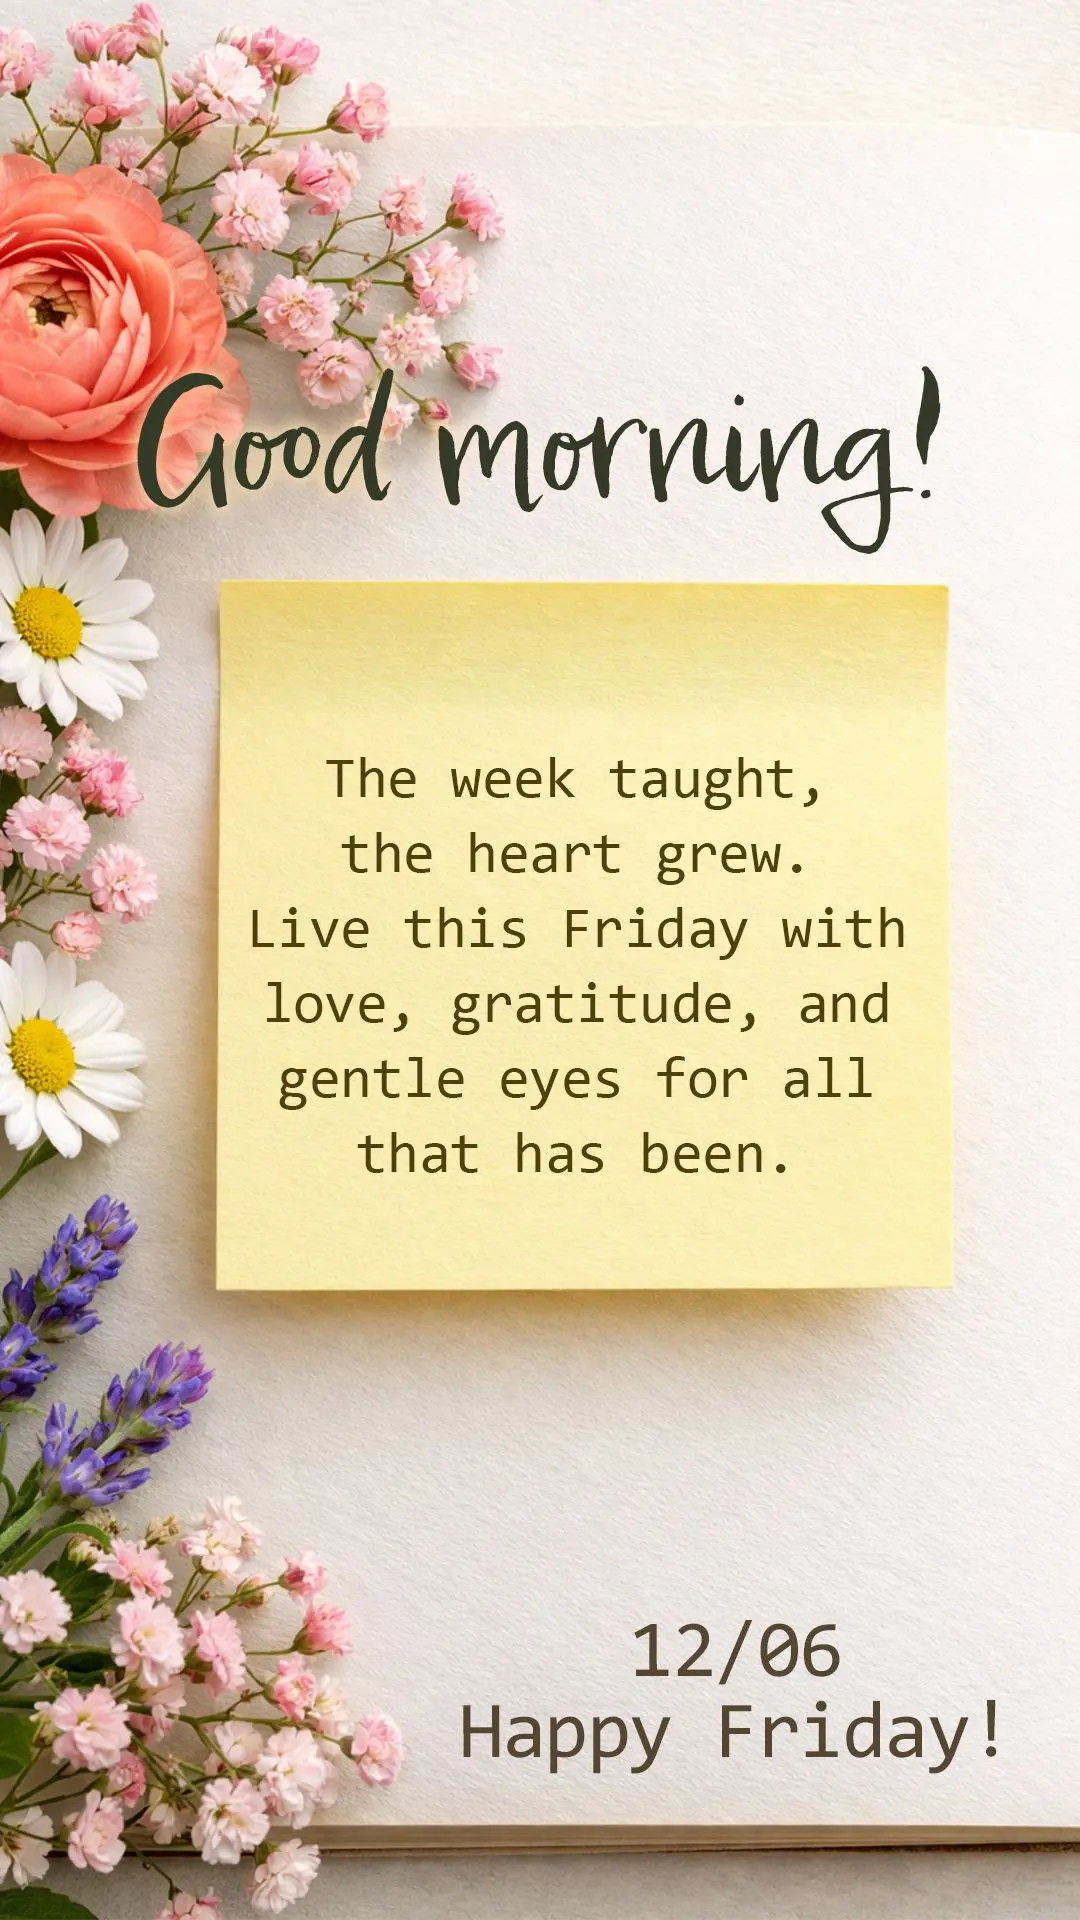 Good morning!
The week taught,
the heart grew.
Live this Friday with
love, gratitude, and
gentle eyes for all
that has been.
12/06
Happy Friday!